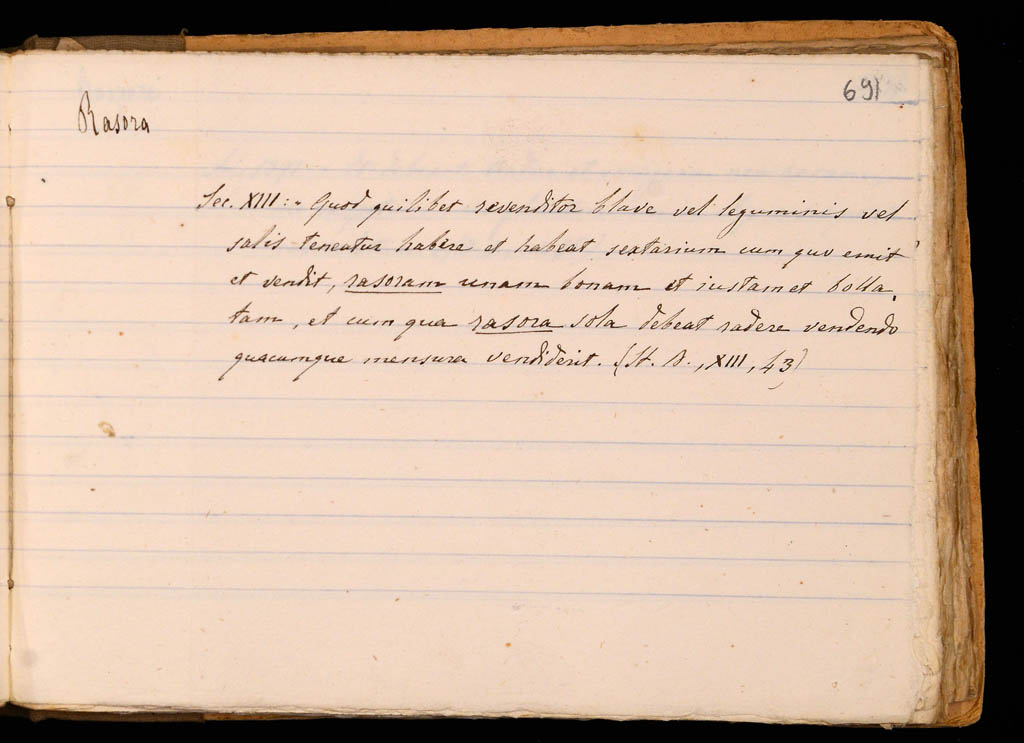 691
Rasora
Sec. XIII: « Quod quilibet revenditor blave vel leguminis vel
salis teneatur habere et habeat sextarium cum quo emit
et vendit, rasoram unam bonam et iustam et bolla,
tam, et cum qua rasora sola debeat radere vendendo
quacumque mensura vendiderit. (St. B., XIII, 43)